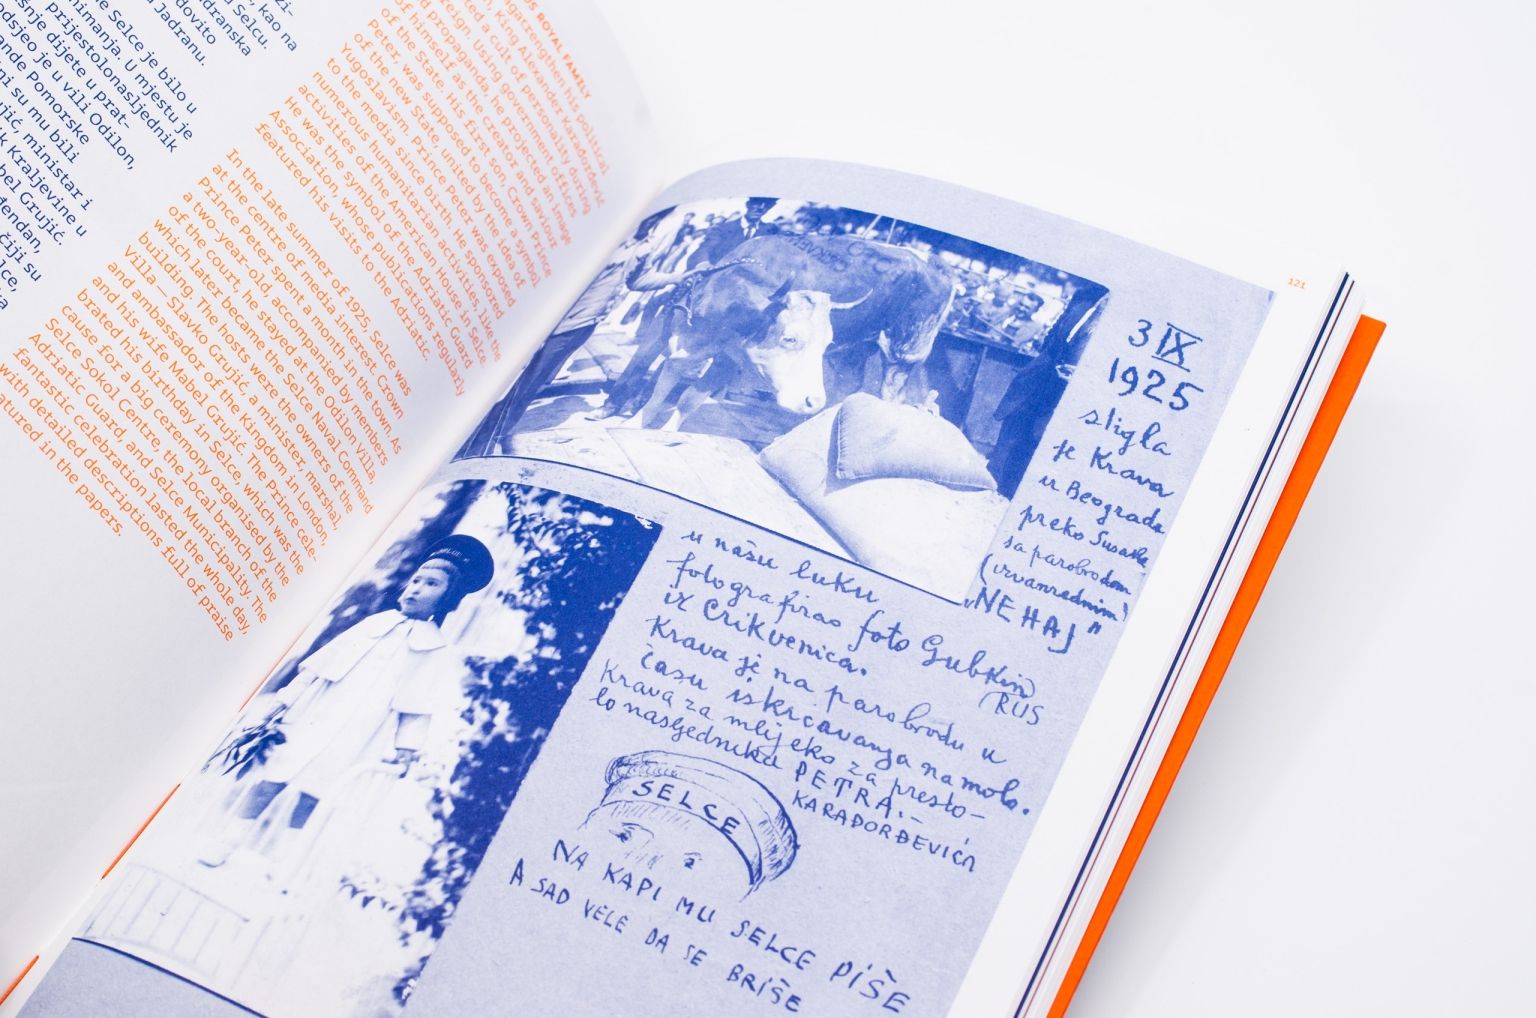 zi-
, kao na
dovito
dranska
Selcu.
Jadranu.
e Selce je bilo u
nimanja. U mjestu je
šnje dijete u prat-
prijestolonasljednik
odsjeo je u vili Odilon,
ande Pomorske
ni su mu bili
ujić, ministar i
k Kraljevine u
bel Grujić.
đendan,
čiji su
elce,
ka
ROYAL FAMILY
strengthen his political
King Alexander Karađorđević
ted a cult of personality during
reign. Using government offices
d propaganda, he projected an image
of himself as the creator and saviour
of the State. His first son, Crown Prince
Peter, was supposed to become a symbol
of the new State, united by the idea of
Yugoslavism. Prince Peter was exposed
to the media since birth. He sponsored
numerous humanitarian activities, like the
activities of the American House in Selce.
He was the symbol of the Adriatic Guard
Association, whose publications regularly
featured his visits to the Adriatic.
In the late summer of 1925, Selce was
at the centre of media interest. Crown
Prince Peter spent a month in the town. As
a two-year-old, accompanied by members
of the court, he stayed at the Odilon Villa,
which later became the Selce Naval Command
building. The hosts were the owners of the
Villa — Slavko Grujić, a minister, marshal,
and ambassador of the Kingdom in London,
and his wife Mabel Grujić. The Prince cele-
brated his birthday in Selce, which was the
cause for a big ceremony organised by the
Selce Sokol Centre, the local branch of the
Adriatic Guard, and Selce Municipality. The
fantastic celebration lasted the whole day,
with detailed descriptions full of praise
atured in the papers.
121
3 IX
1925
stigla
je Krava
iz Beograda
preko Sušaka
sa parobrodom
(izvanrednim)
„NEHAJ"
u našu luku
fotografirao foto Gubkin
RUS
iz Crikvenica.
Krava je na parobrodu u
času iskrcavanja na molo.
Krava za mlijeko za presto-
lonasljednika PETRA.–
KARAĐORĐEVIĆA
SELCE
NA KAPI MU SELCE PIŠE
A SAD VELE DA SE BRIŠE